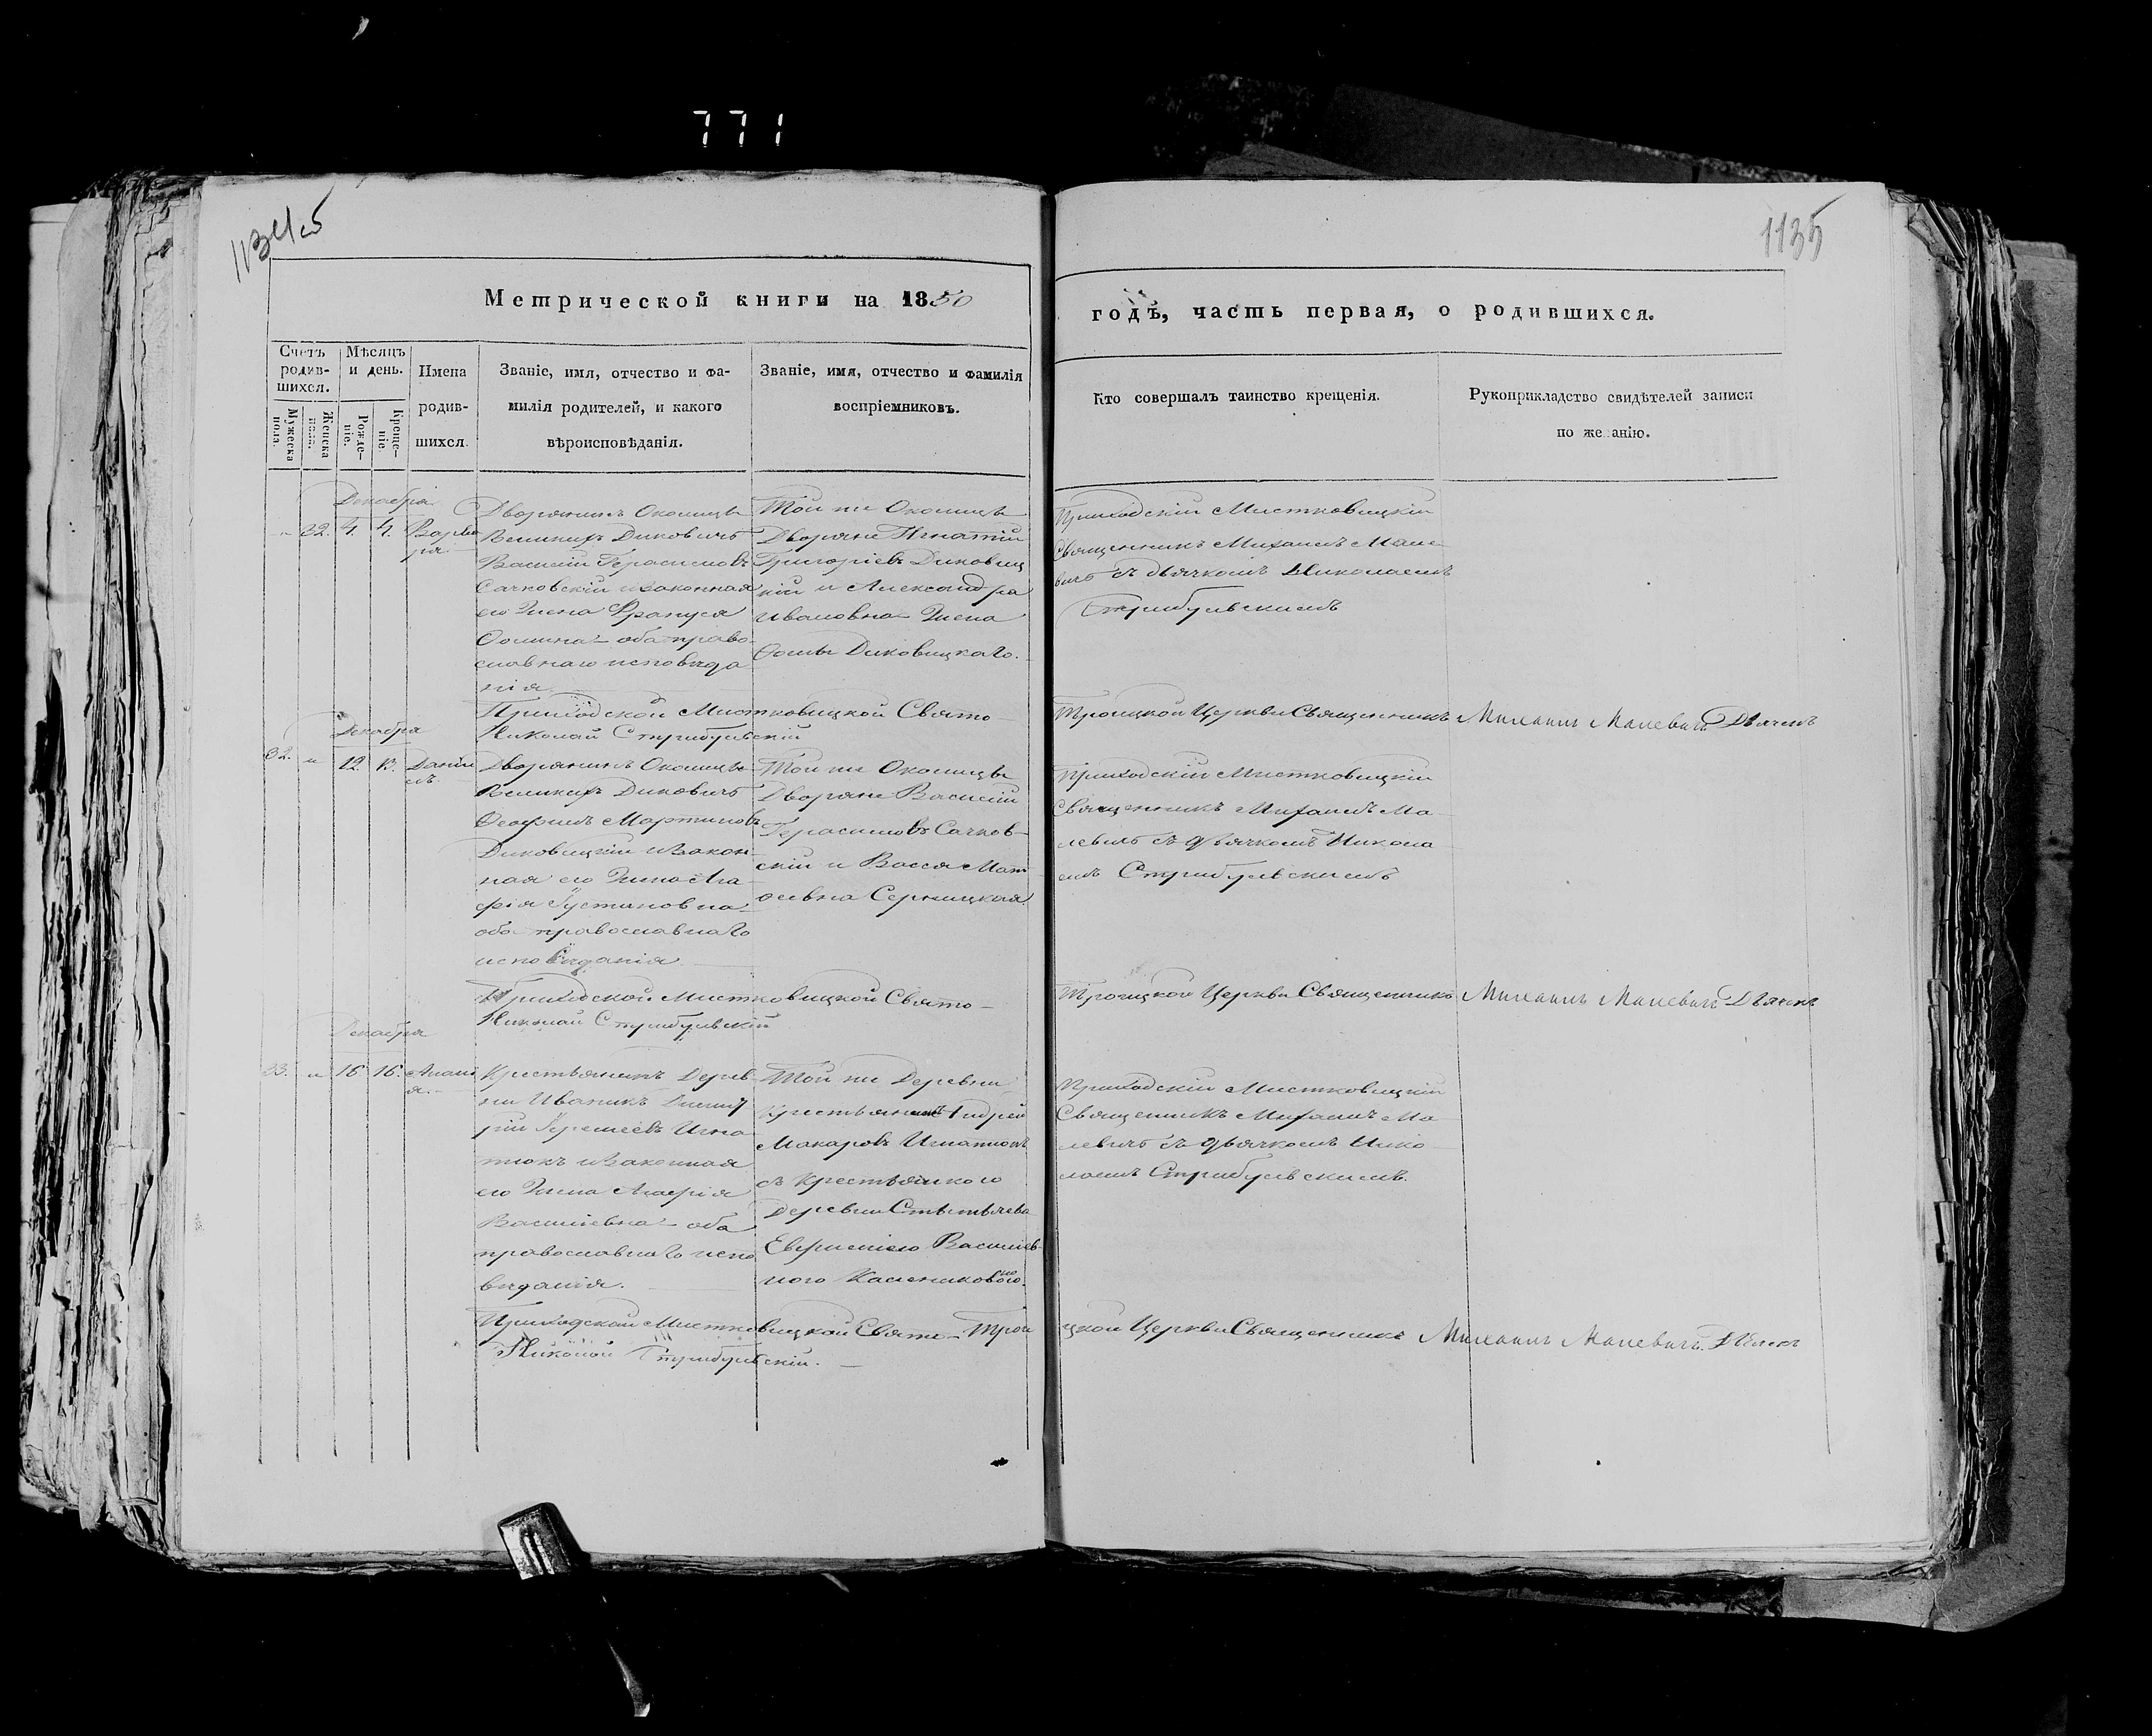 771
1135
Метрической книги на 1850
годъ, часть первая, о родившихся.
Счетъ родившихся.
Мужеска пола.
Женска пола.
Мѣсяцъ и день.
Рожденіе.
Крещеніе.
Имена
родив-
шихся.
Званіе, имя, отчество и фа-
милія родителей, и какого
вѣроисповѣданія.
Званіе, имя, отчество и фамилія
воспріемниковъ.
Кто совершалъ таинство крещенія.
Рукоприкладство свидѣтелей записи
по же анію.
Декабря
22. 4. 4. Варва
ра
Дворянинъ Околицы
Великихъ Диковичъ
Василій Герасимовъ
Сачковскій и законная
его жена Франуся
Осипина оба право-
славнаго исповѣда
нія.
Той же Околицы
Дворяне Игнатій
Григоріевъ Диковиц
кій и Александра
Ивановна жена
Осипа Диковицкаго.
Приходскій Мистковицкій
Священникъ Михаилъ Мале
вичъ съ дьячкомъ Николаемъ
Стрибульскимъ
Приходской Мистковицкой Свято-
Троицкой Церкви Священникъ Михаилъ Малевичъ Дьячекъ
Николай Стрибульскій
Декабря
32. 12. 13. Данiи
лъ.
Дворянинъ Околицы
Великихъ Диковичъ
Феофилъ Мартиновъ
Диковицкій и закон-
ная его жена Ага-
фія Устиновна
оба православнаго
исповѣданія
Той же Околицы
Дворяне Василій
Герасимовъ Сачков-
скій и Васса Мат-
ѳевна Серницкая.
Приходскій Мистковицкій
Священникъ Михаилъ Ма-
левичъ съ дьячкомъ Никола
емъ Стрибульскимъ
Приходской Мистковицкой Свято-
Троицкой Церкви Священникъ Михаилъ Малевичъ Дьячекъ
Николай Стрибульскій
Декабря
33. 16. 16. Анані
я.
Крестьянинъ Дерев-
ни Иваникъ Димит
рій Еремеевъ Игна
тюкъ и законная
его жена Агафія
Василіевна оба
православнаго испо
вѣданія.
Той же Деревни
крестьянинъ Андрей
Макаровъ Игнатюкъ
съ крестьянкою
деревни
Евфиміею Василіев-
ною
Приходскій Мистковицкій
Священникъ Михаилъ Ма-
левичъ съ дьячкомъ Нико-
лаемъ Стрибульскимъ.
Приходской Мистковицкой Свято-Трои
цкой Церкви Священникъ Михаилъ Малевичъ. Дьячекъ
Николай Стрибульскій.